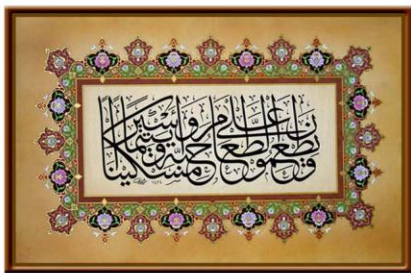 وَيُطْعِمُونَ الطَّعَامَ عَلَىٰ حُبِّهِ مِسْكِينًا وَيَتِيمًا وَأَسِيرًا